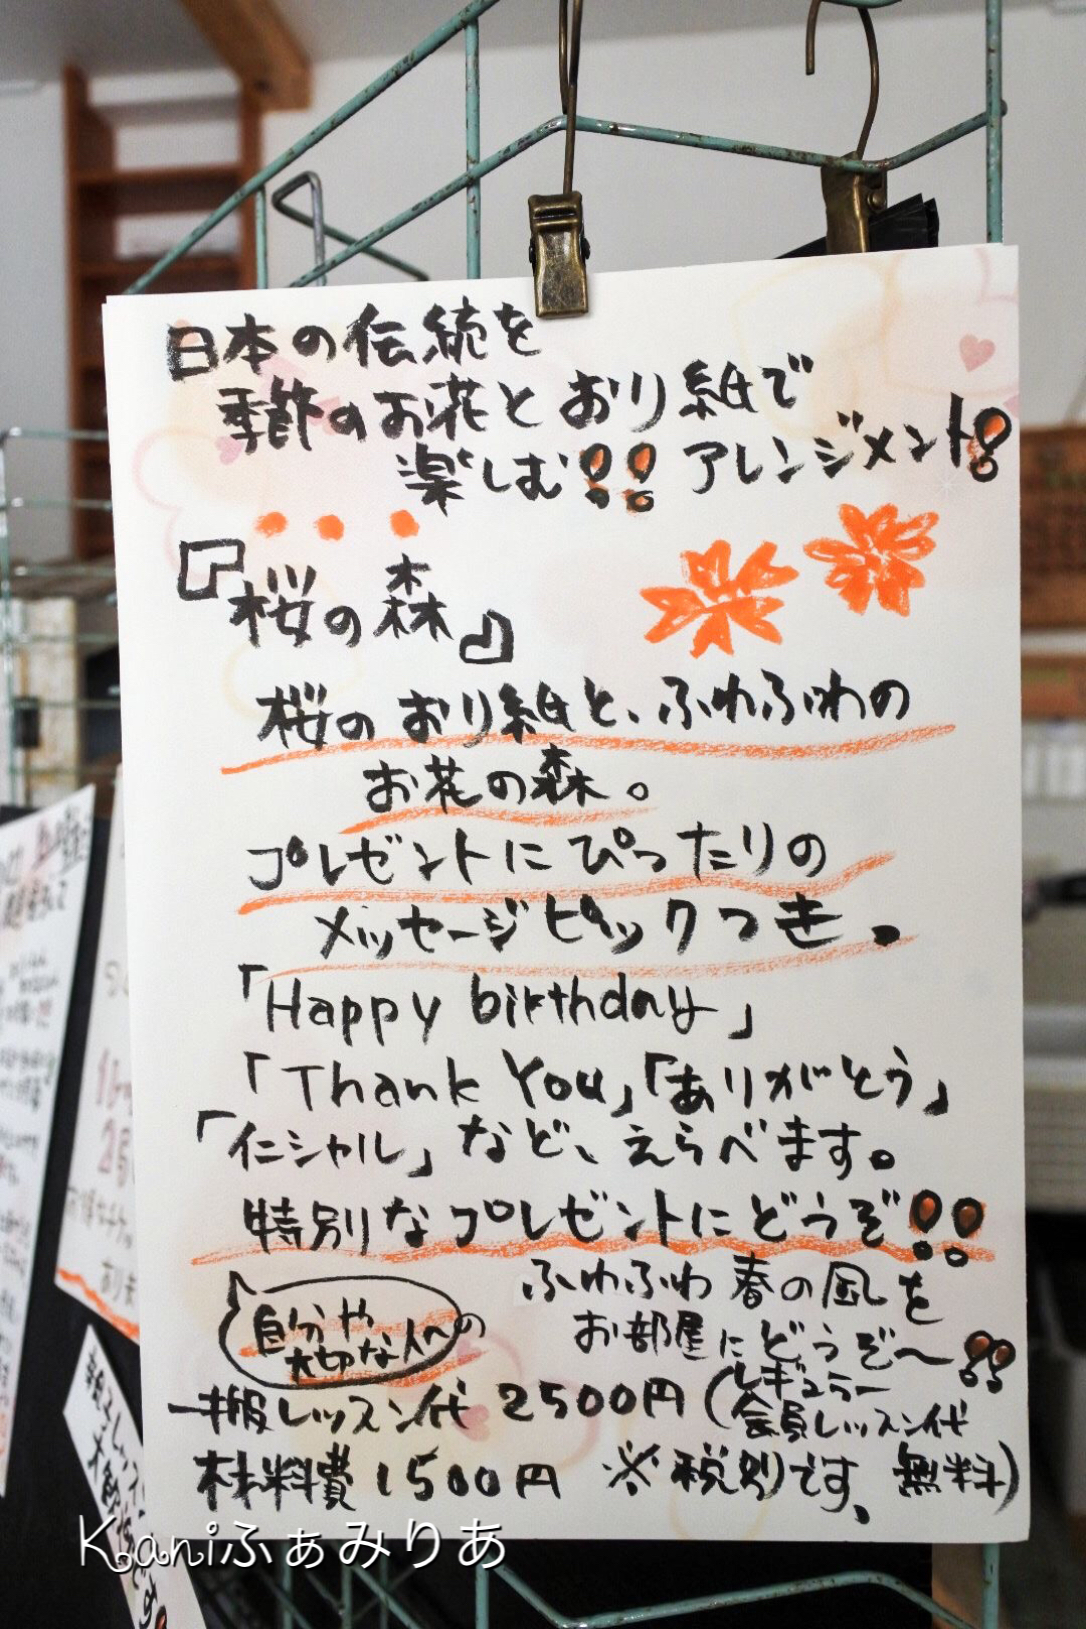 日本の伝統を
季節のお花とおり紙で
楽しむ!! アレンジメント!
『桜の森』
桜のおり紙と、ふわふわの
お花の森。
プレゼントにぴったりの
メッセージピックつき。
「Happy birthday」
「Thank You」「ありがとう」
「イニシャル」など、えらべます。
特別なプレゼントにどうぞ!!
自分や
大切な人への
ふわふわ春の風を
お部屋にどうぞ〜!!
一般レッスン代 2500円 (レギュラー
会員レッスン代
材料費 1500円 ※税別です。 無料)
Kaniふぁみりあ